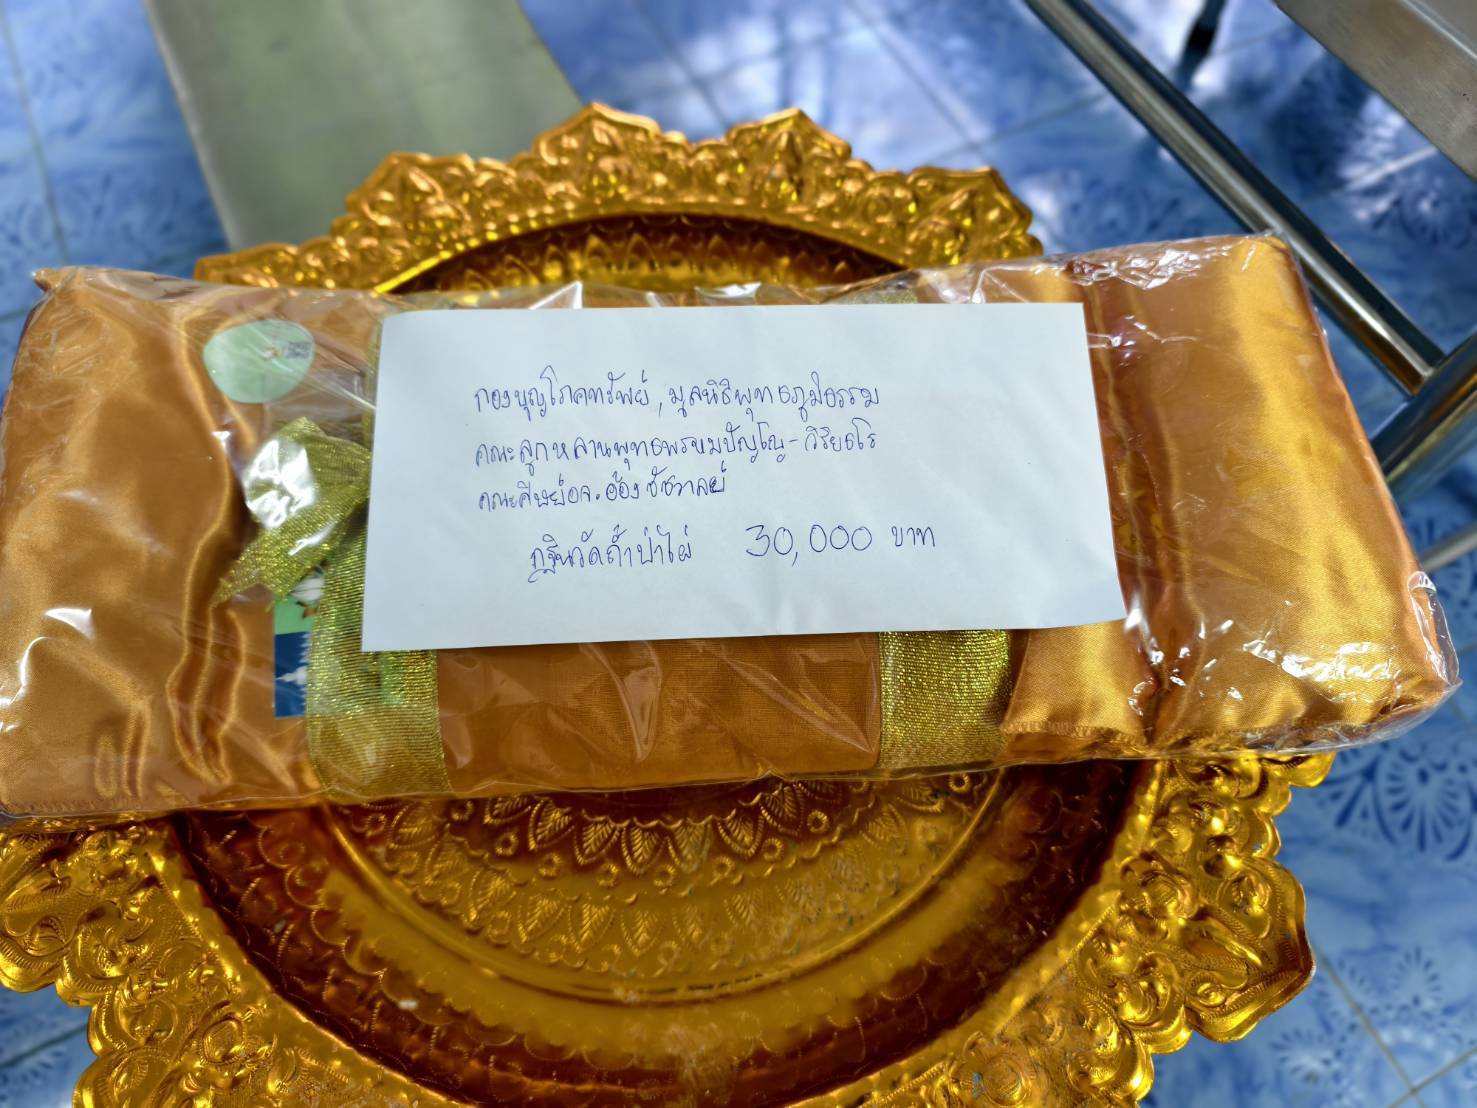 กองบุญโภคทรัพย์, มูลนิธิพุทธภูมิธรรม
คณะลูกหลานพุทธพรหมปัญโญ - วิริยธโร
คณะศิษย์อจ.อ๋อง ชัชวาลย์
กฐินวัดถ้ำป่าไผ่ 30,000 บาท